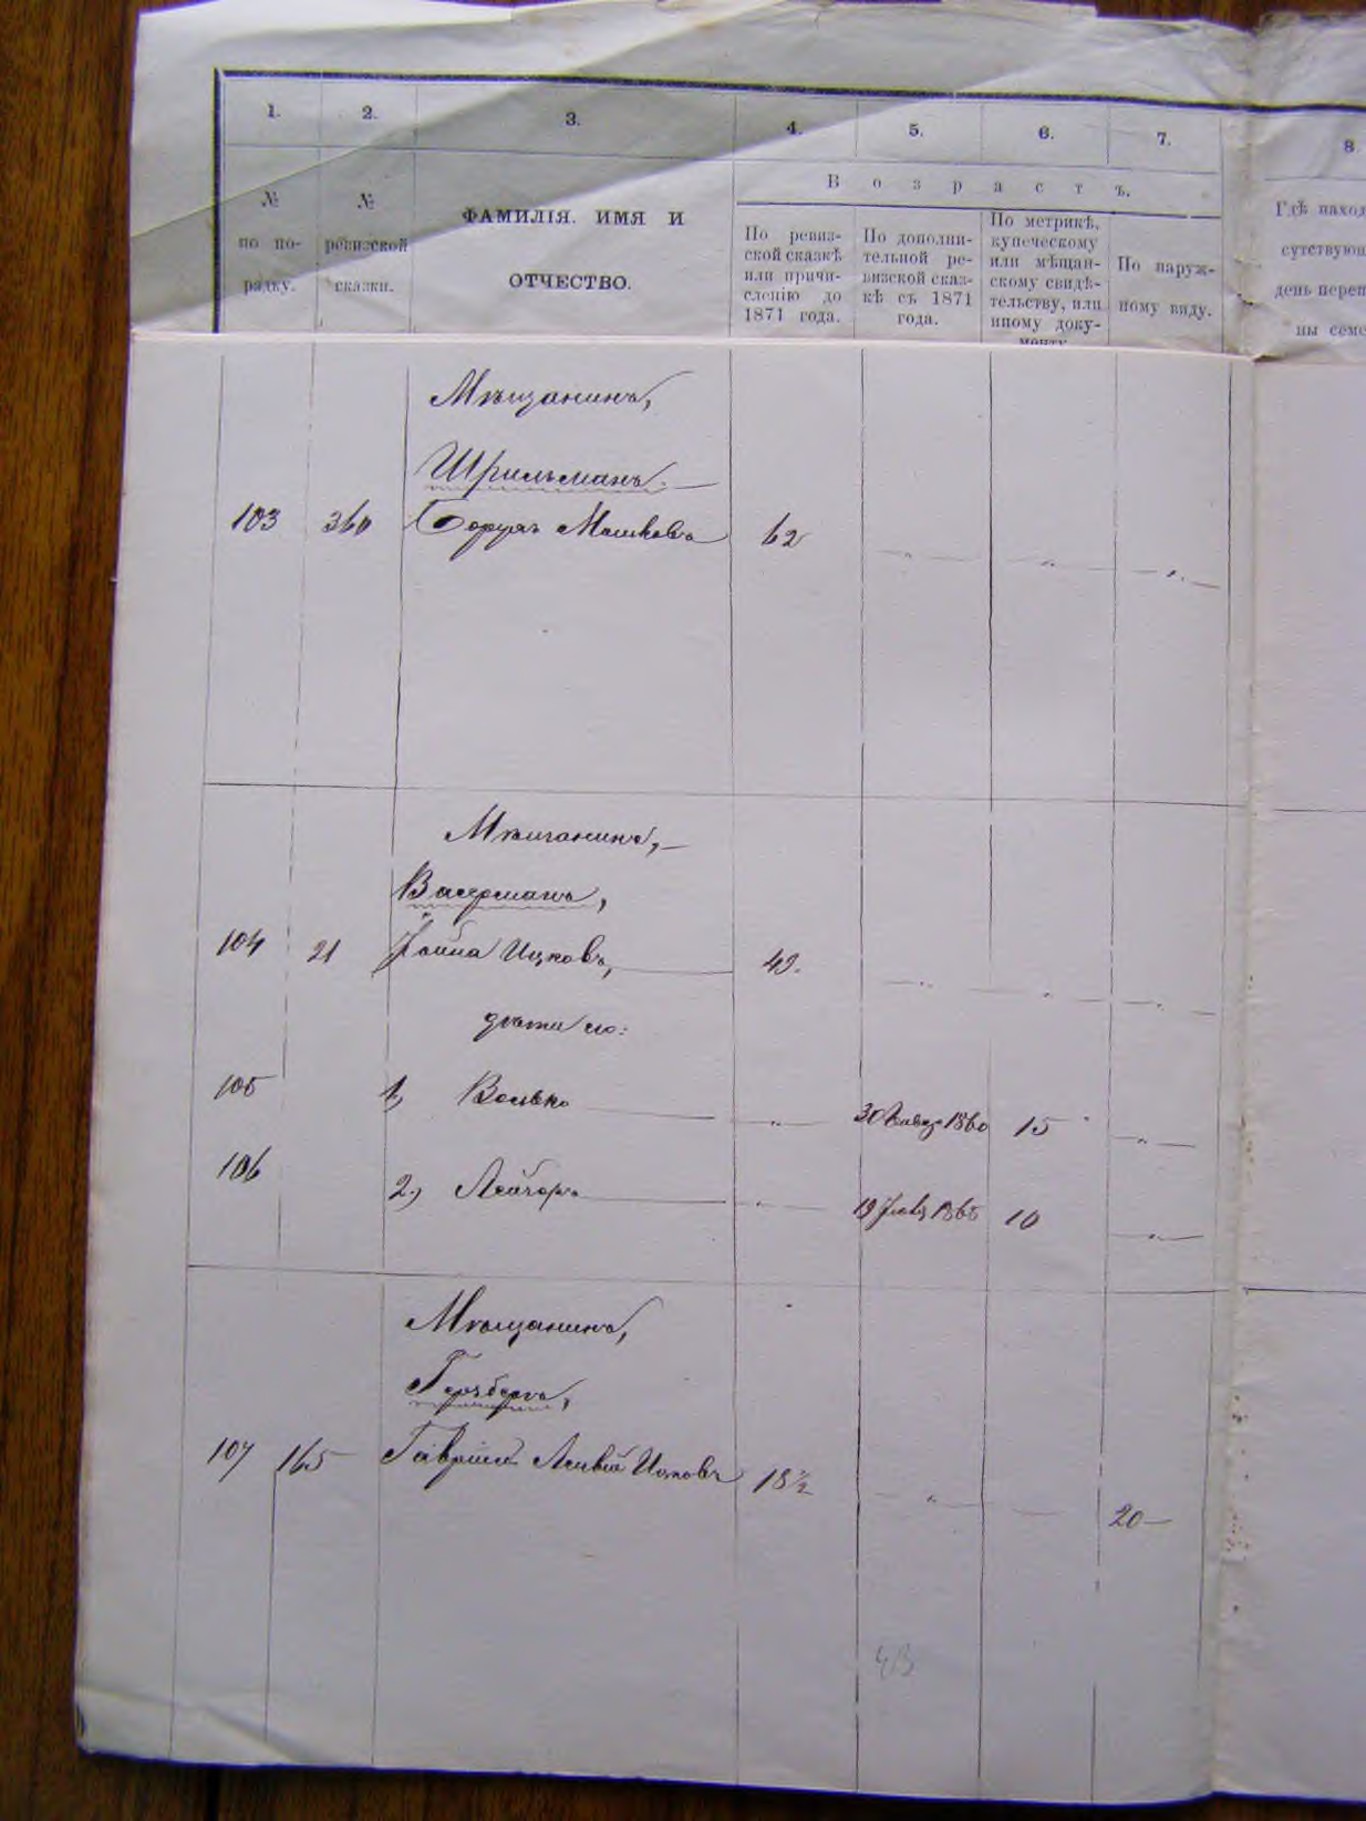 1. 2. 3. 4. 5. 6. 7. 8
№ по по-рядку.
№ ревизской сказки.
ФАМИЛІЯ. ИМЯ И
ОТЧЕСТВО.
Возрастъ.
По ревиз-
ской сказкѣ
или причи-
сленію до
1871 года.
По дополни-
тельной ре-
визской сказ-
кѣ съ 1871
года.
По метрикѣ,
купеческому
или мѣщан-
скому свидѣ-
тельству, или
иному доку-
менту
По наруж-
ному виду.
Гдѣ наход
сутствующ
день переп
ны семе
Мѣщанинъ,
Шрильманъ.
103 360 Борухъ Мошковъ 62
Мѣщанинъ,
Васерманъ,
104 21 Ицковъ, 49.
дѣти его:
105 1, Волько 30 1860 15
106 2, 19 1865 10
Мѣщанинъ,
Герзбергъ,
107 165 Гавріил Ицковъ 18½ 20
43